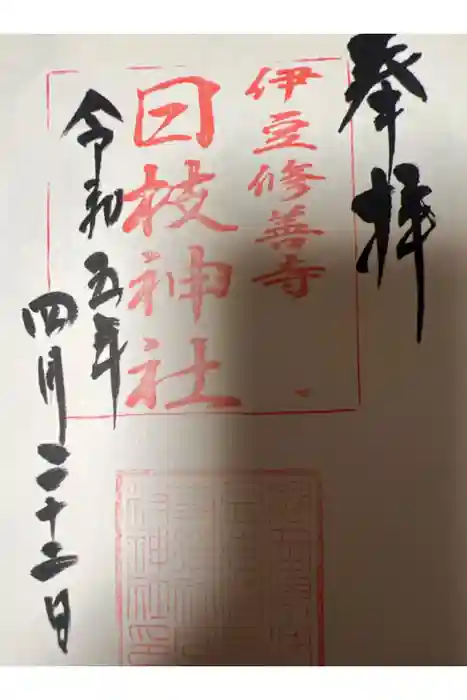 奉拝
伊豆修善寺
日枝神社
令和五年
四月二十二日